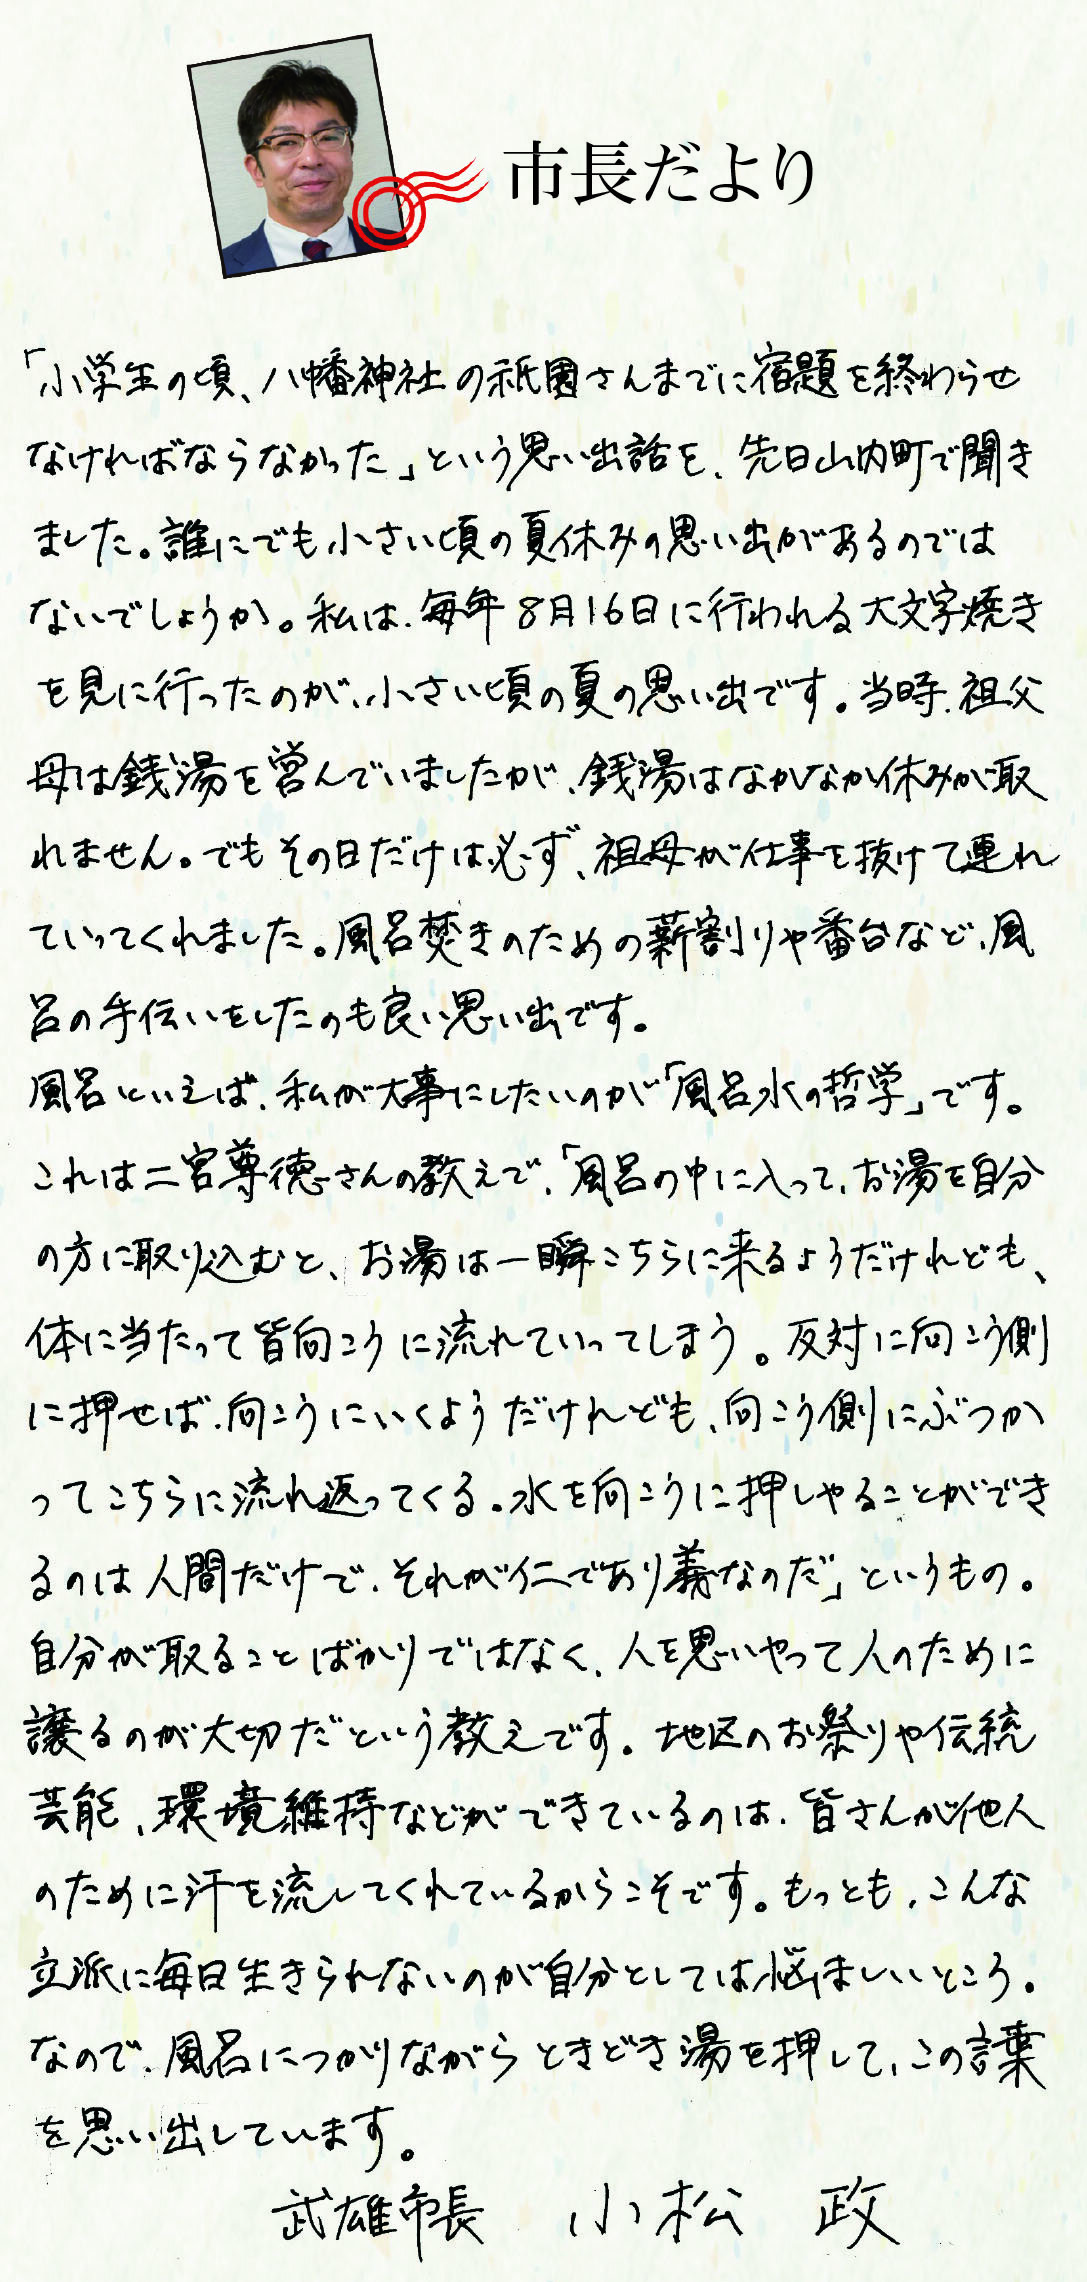 市長だより
「小学生の頃、八幡神社の祇園さんまでに宿題を終わらせ
なければならなかった」という思い出話を、先日山内町で聞き
ました。誰にでも小さい頃の夏休みの思い出があるのでは
ないでしょうか。私は、毎年8月16日に行われる大文字焼き
を見に行ったのが、小さい頃の夏の思い出です。当時、祖父
母は銭湯を営んでいましたが、銭湯はなかなか休みが取
れません。でもその日だけは必ず、祖母が仕事を抜けて連れ
ていってくれました。風呂焚きのための薪割りや番台など、風
呂の手伝いをしたのも良い思い出です。
風呂といえば、私が大事にしたいのが「風呂水の哲学」です。
これは二宮尊徳さんの教えで、「風呂の中に入って、お湯を自分
の方に取り込むと、お湯は一瞬こちらに来るようだけれども、
体に当たって皆向こうに流れていってしまう。反対に向こう側
に押せば、向こうにいくようだけれども、向こう側にぶつか
ってこちらに流れ返ってくる。水を向こうに押しやることができ
るのは人間だけで、それが仁であり義なのだ」というもの。
自分が取ることばかりではなく、人を思いやって人のために
譲るのが大切だという教えです。地区のお祭りや伝統
芸能、環境維持などができているのは、皆さんが他人
のために汗を流してくれているからこそです。もっとも、こんな
立派に毎日生きられないのが自分としては悩ましいところ。
なので、風呂につかりながらときどき湯を押して、この言葉
を思い出しています。
武雄市長 小松 政